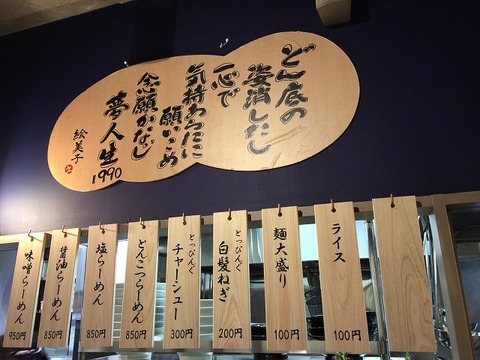 どん底の
姿消したし
一心で
気持あらたに
願いこめ
念願かなじ
夢人生
1990
絵美子
ライス
100円
麺大盛り
100円
とっぴんぐ
白髪ねぎ
200円
とっぴんぐ
チャーシュー
300円
とんこつらーめん
850円
塩らーめん
850円
醤油らーめん
850円
味噌らーめん
950円